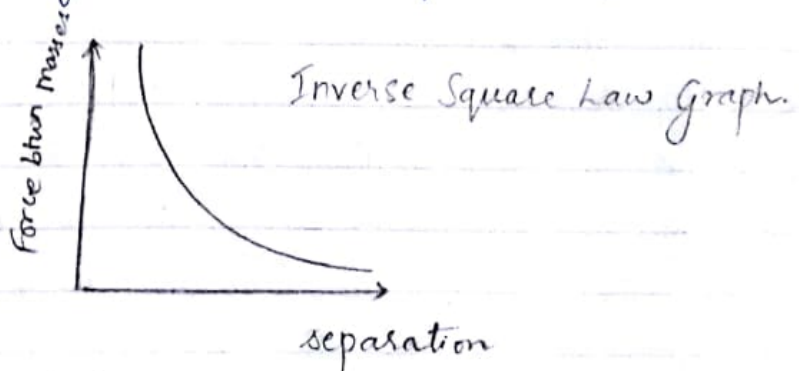 Force btwn Masses
Inverse Square Law Graph.
separation